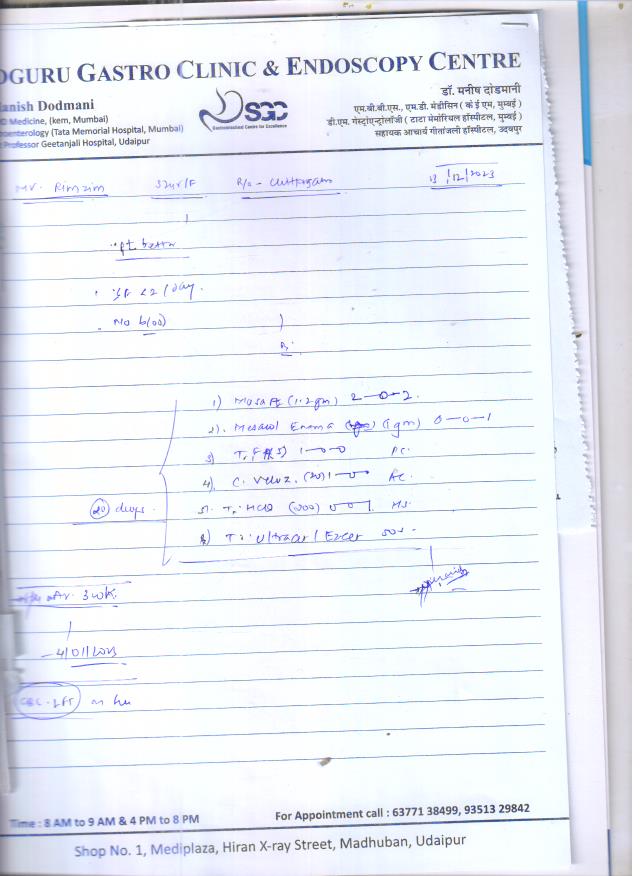 OGURU GASTRO CLINIC & ENDOSCOPY CENTRE
anish Dodmani
D Medicine, (kem, Mumbai)
oenterology (Tata Memorial Hospital, Mumbai)
Professor Geetanjali Hospital, Udaipur
SGC
Gastrointestinal Centre for Excellence
डॉ. मनीष दांडमानी
एम.बी.बी.एस., एम.डी. मेडीसिन ( के ई एम, मुम्बई )
डी.एम. गेस्ट्रोएन्ट्रोलॉजी ( टाटा मेमोरियल हॉस्पीटल, मुम्बई )
सहायक आचार्य गीतांजली हॉस्पीटल, उदयपुर
Rimzim 32yr/F R/o - Chittorgarh 13/12/2023
pt better
<2 / day.
No blood
Rx
1) (1.2gm) 2-0-2.
2). Mesacol Enema (1gm) 0-0-1
3) 1-0-0 PC.
4). C. Veloz. (20) 1-0-0 AC.
5). T. HCQ (200) 0-0-1 HS.
6) T. /
20 days.
3 wk.
CBC. LFT
Time : 8 AM to 9 AM & 4 PM to 8 PM
For Appointment call : 63771 38499, 93513 29842
Shop No. 1, Mediplaza, Hiran X-ray Street, Madhuban, Udaipur